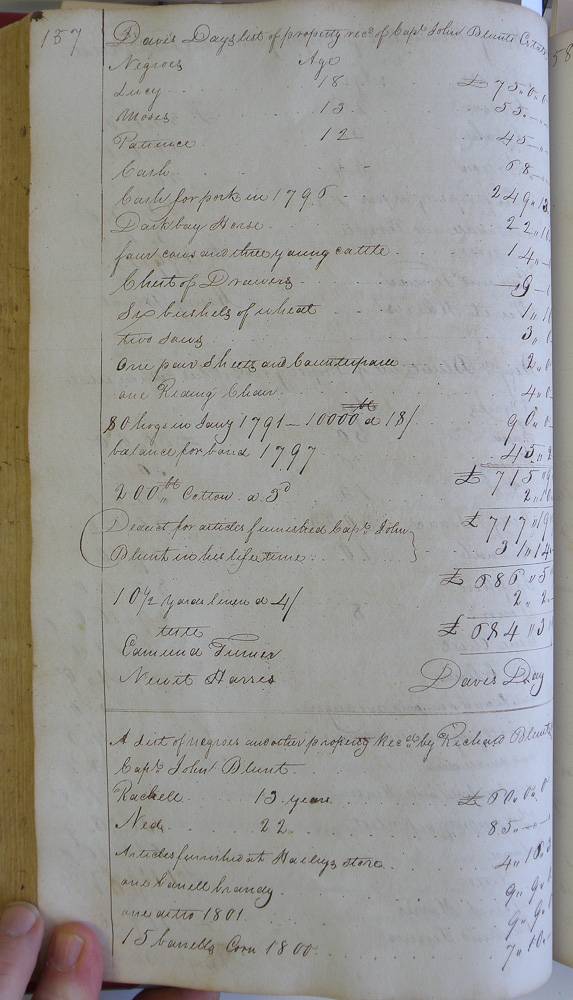 137
Davis Days list of property recd of Capt John Blunts Estate
Negroes Age
Lucy 18 £75.0.0
Moses 13 55.
Patience 12 45
Cash 68
Cash for pork in 1796 249..13
Dark bay Horse 22..10
four cows and three young cattle 14..
Chest of Drawers 9
Six bushels of wheat 1..10
two Sows 3..
One pair Sheets and Counterpane 2..0
one Riding Chair 4..0
80 hogs in Jany 1791 — 10000 lb a 18/ 90..0
balance for bond 1797 45..2
£715..9
200 lb Cotton a 3d 2..10
£717..19
Deduct for articles furnished Capt John
Blunt in his life time 31..14
£686..5
10½ yards linen a 4/ 2..2
£684..3
test
Edmund Turner
Newit Harris Davis Day
A list of negroes and other property Recd by Richard Blunt
Capt John Blunt
Rachell 13 years £60.0.0
Ned 22 85
Articles furnished at Haileys store 4..18..3
one barrell brandy 9..9
one ditto 1801 9..9
15 barrells Corn 1800 7..10
58